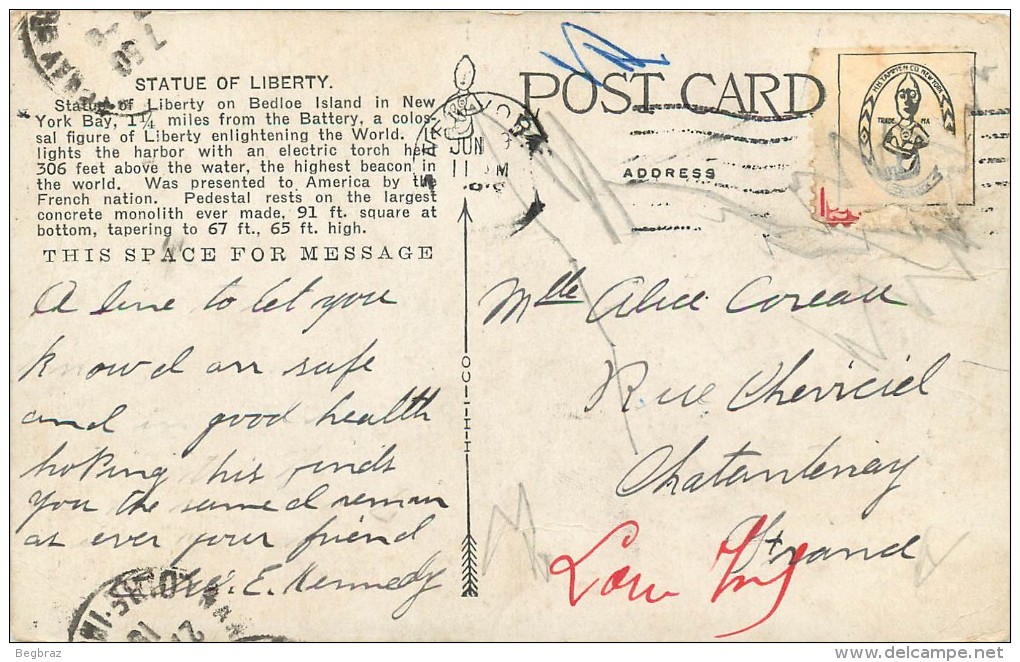 STATUE OF LIBERTY.
Statue of Liberty on Bedloe Island in New
York Bay, 1¼ miles from the Battery, a colos-
sal figure of Liberty enlightening the World. It
lights the harbor with an electric torch held
306 feet above the water, the highest beacon in
the world. Was presented to America by the
French nation. Pedestal rests on the largest
concrete monolith ever made, 91 ft. square at
bottom, tapering to 67 ft., 65 ft. high.
THIS SPACE FOR MESSAGE
A line to let you
know d am safe
and in good health
hoping this finds
you the same d remain
as ever your friend
E. Kennedy
H-H-I-CO
POST CARD
ADDRESS
JUN
11 M
TRADE MA
Mlle Alice Coreau
Rue
Chatantenay
7 50
Begbraz
www.delcampe.net